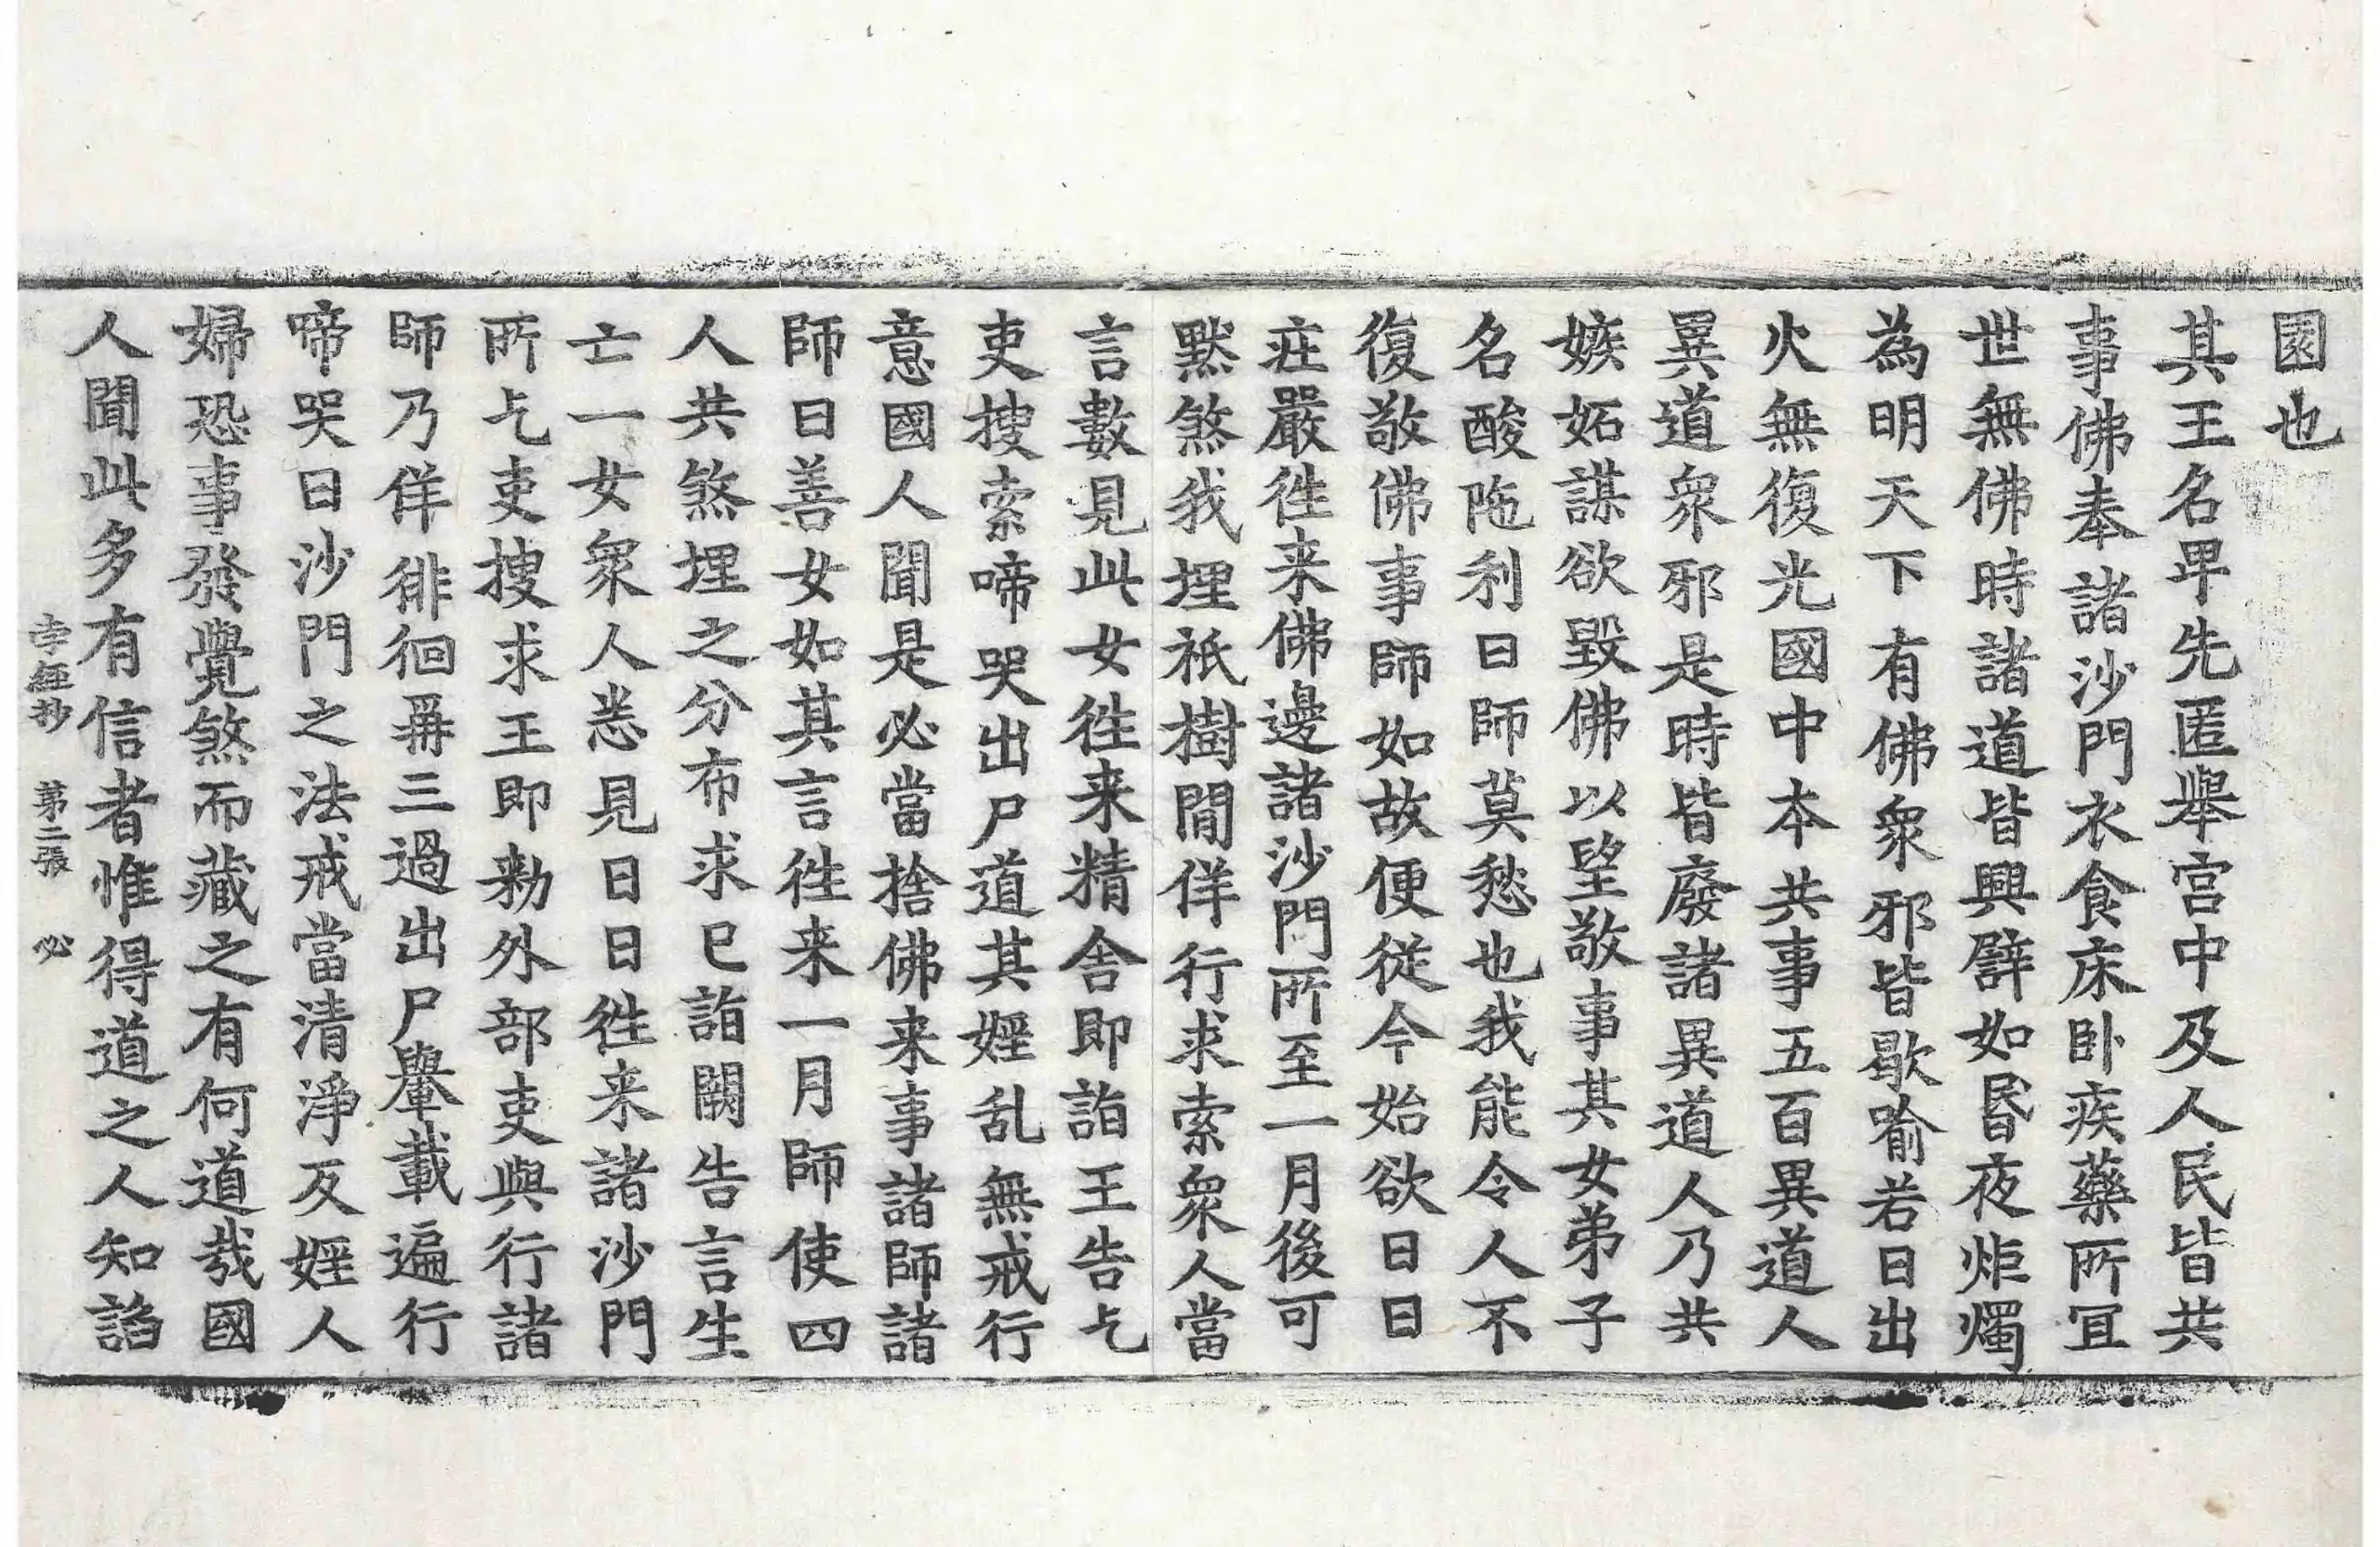 園也
其王名卑先匿擧宮中及人民皆共
事佛奉諸沙門衣食床卧疾藥所冝
世無佛時諸道皆興譬如昬夜炬燭
為明天下有佛衆邪皆歇喻若日出
火無復光國中本共事五百異道人
異道衆邪是時皆廢諸異道人乃共
嫉妬謀欲毀佛以望敬事其女弟子
名酸陁利曰師莫愁也我能令人不
復敬佛事師如故便從今始欲日日
莊嚴徃来佛邊諸沙門所至一月後可
默煞我埋祇樹間佯行求索衆人當
言數見此女徃来精舍即詣王告乞
吏搜索啼哭出尸道其婬乱無戒行
意國人聞是必當捨佛来事諸師諸
師曰善女如其言徃来一月師使四
人共煞埋之分布求已詣闕告言生
亡一女衆人悉見日日徃来諸沙門
所乞吏搜求王即勑外部吏與行諸
師乃佯徘徊再三過出尸轝載遍行
啼哭曰沙門之法戒當清淨反婬人
婦恐事發覺煞而藏之有何道㢤國
人聞此多有信者惟得道之人知諂
孛經抄　第二張　必